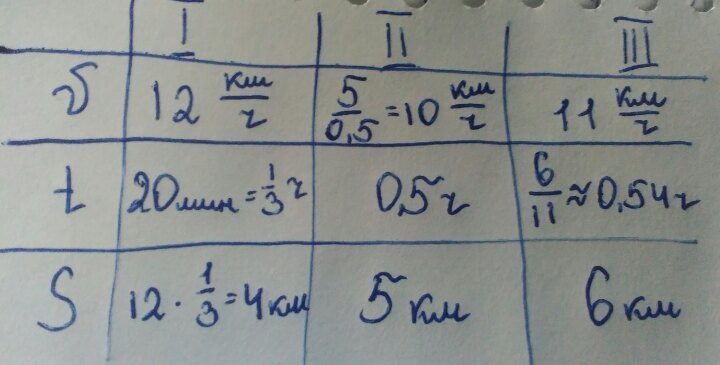 I II III
υ 12 км/ч 5/0,5 = 10 км/ч 11 км/ч
t 20 мин = 1/3 ч 0,5 ч 6/11 ≈ 0,54 ч
S 12 · 1/3 = 4 км 5 км 6 км